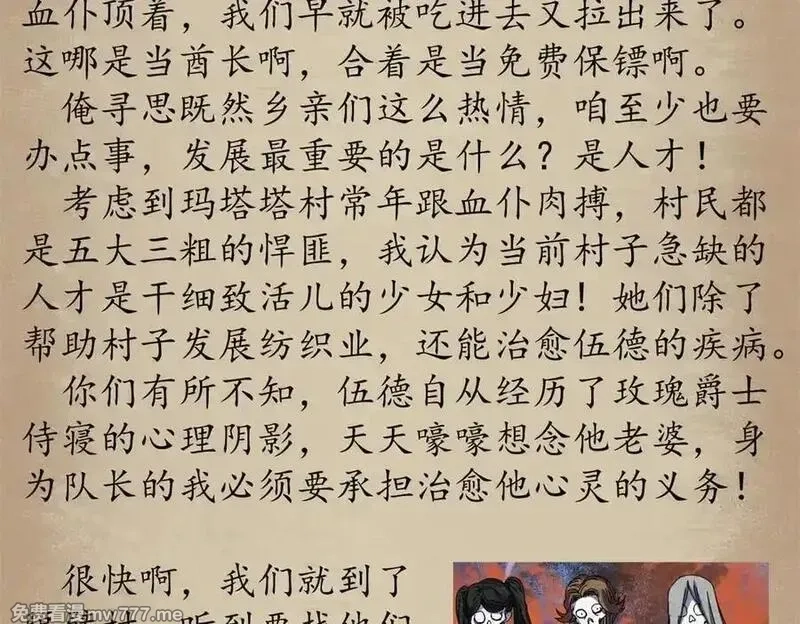 血仆顶着，我们早就被吃进去又拉出来了。
这哪是当酋长啊，合着是当免费保镖啊。
俺寻思既然乡亲们这么热情，咱至少也要
办点事，发展最重要的是什么？是人才！
考虑到玛塔塔村常年跟血仆肉搏，村民都
是五大三粗的悍匪，我认为当前村子急缺的
人才是干细致活儿的少女和少妇！她们除了
帮助村子发展纺织业，还能治愈伍德的疾病。
你们有所不知，伍德自从经历了玫瑰爵士
侍寝的心理阴影，天天嚎嚎想念他老婆，身
为队长的我必须要承担治愈他心灵的义务！
很快啊，我们就到了
听到要找他们
免费看漫mw777.me